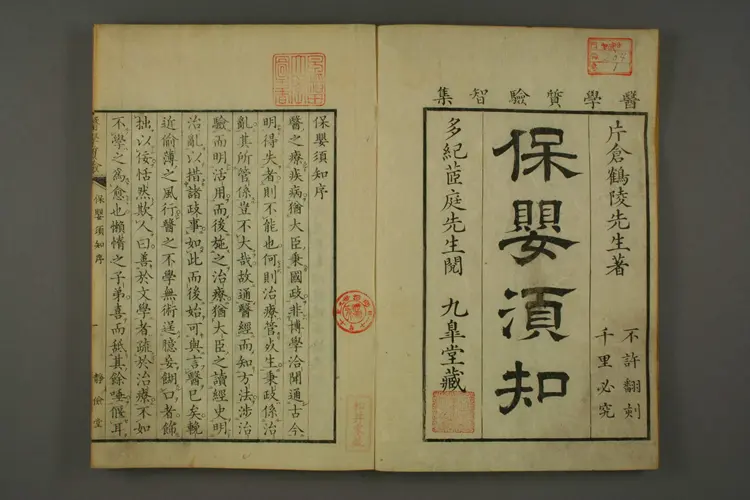 醫學質驗智集
片倉鶴陵先生著
不許翻刻
千里必究
保嬰須知
多紀茝庭先生閱
九皐堂藏
保嬰須知序
醫之療疾病猶大臣秉國政非博學洽聞通古今
明得失者則不能也何則治療管死生秉政係治
亂其所管係豈不大哉故通醫經而知方法涉治
驗而明活用而後施之治療猶大臣之讀經史明
治亂以措諸政事如此而後始可與言醫已矣輓
近偷薄之風行醫之不學無術逞臆妄餬口者飾
拙以佞恬然欺人曰善於文學者疏於治療不如
不學之為愈也懶惰之子弟喜而紙其餘唾偃耳
保嬰須知序
一
靜儉堂